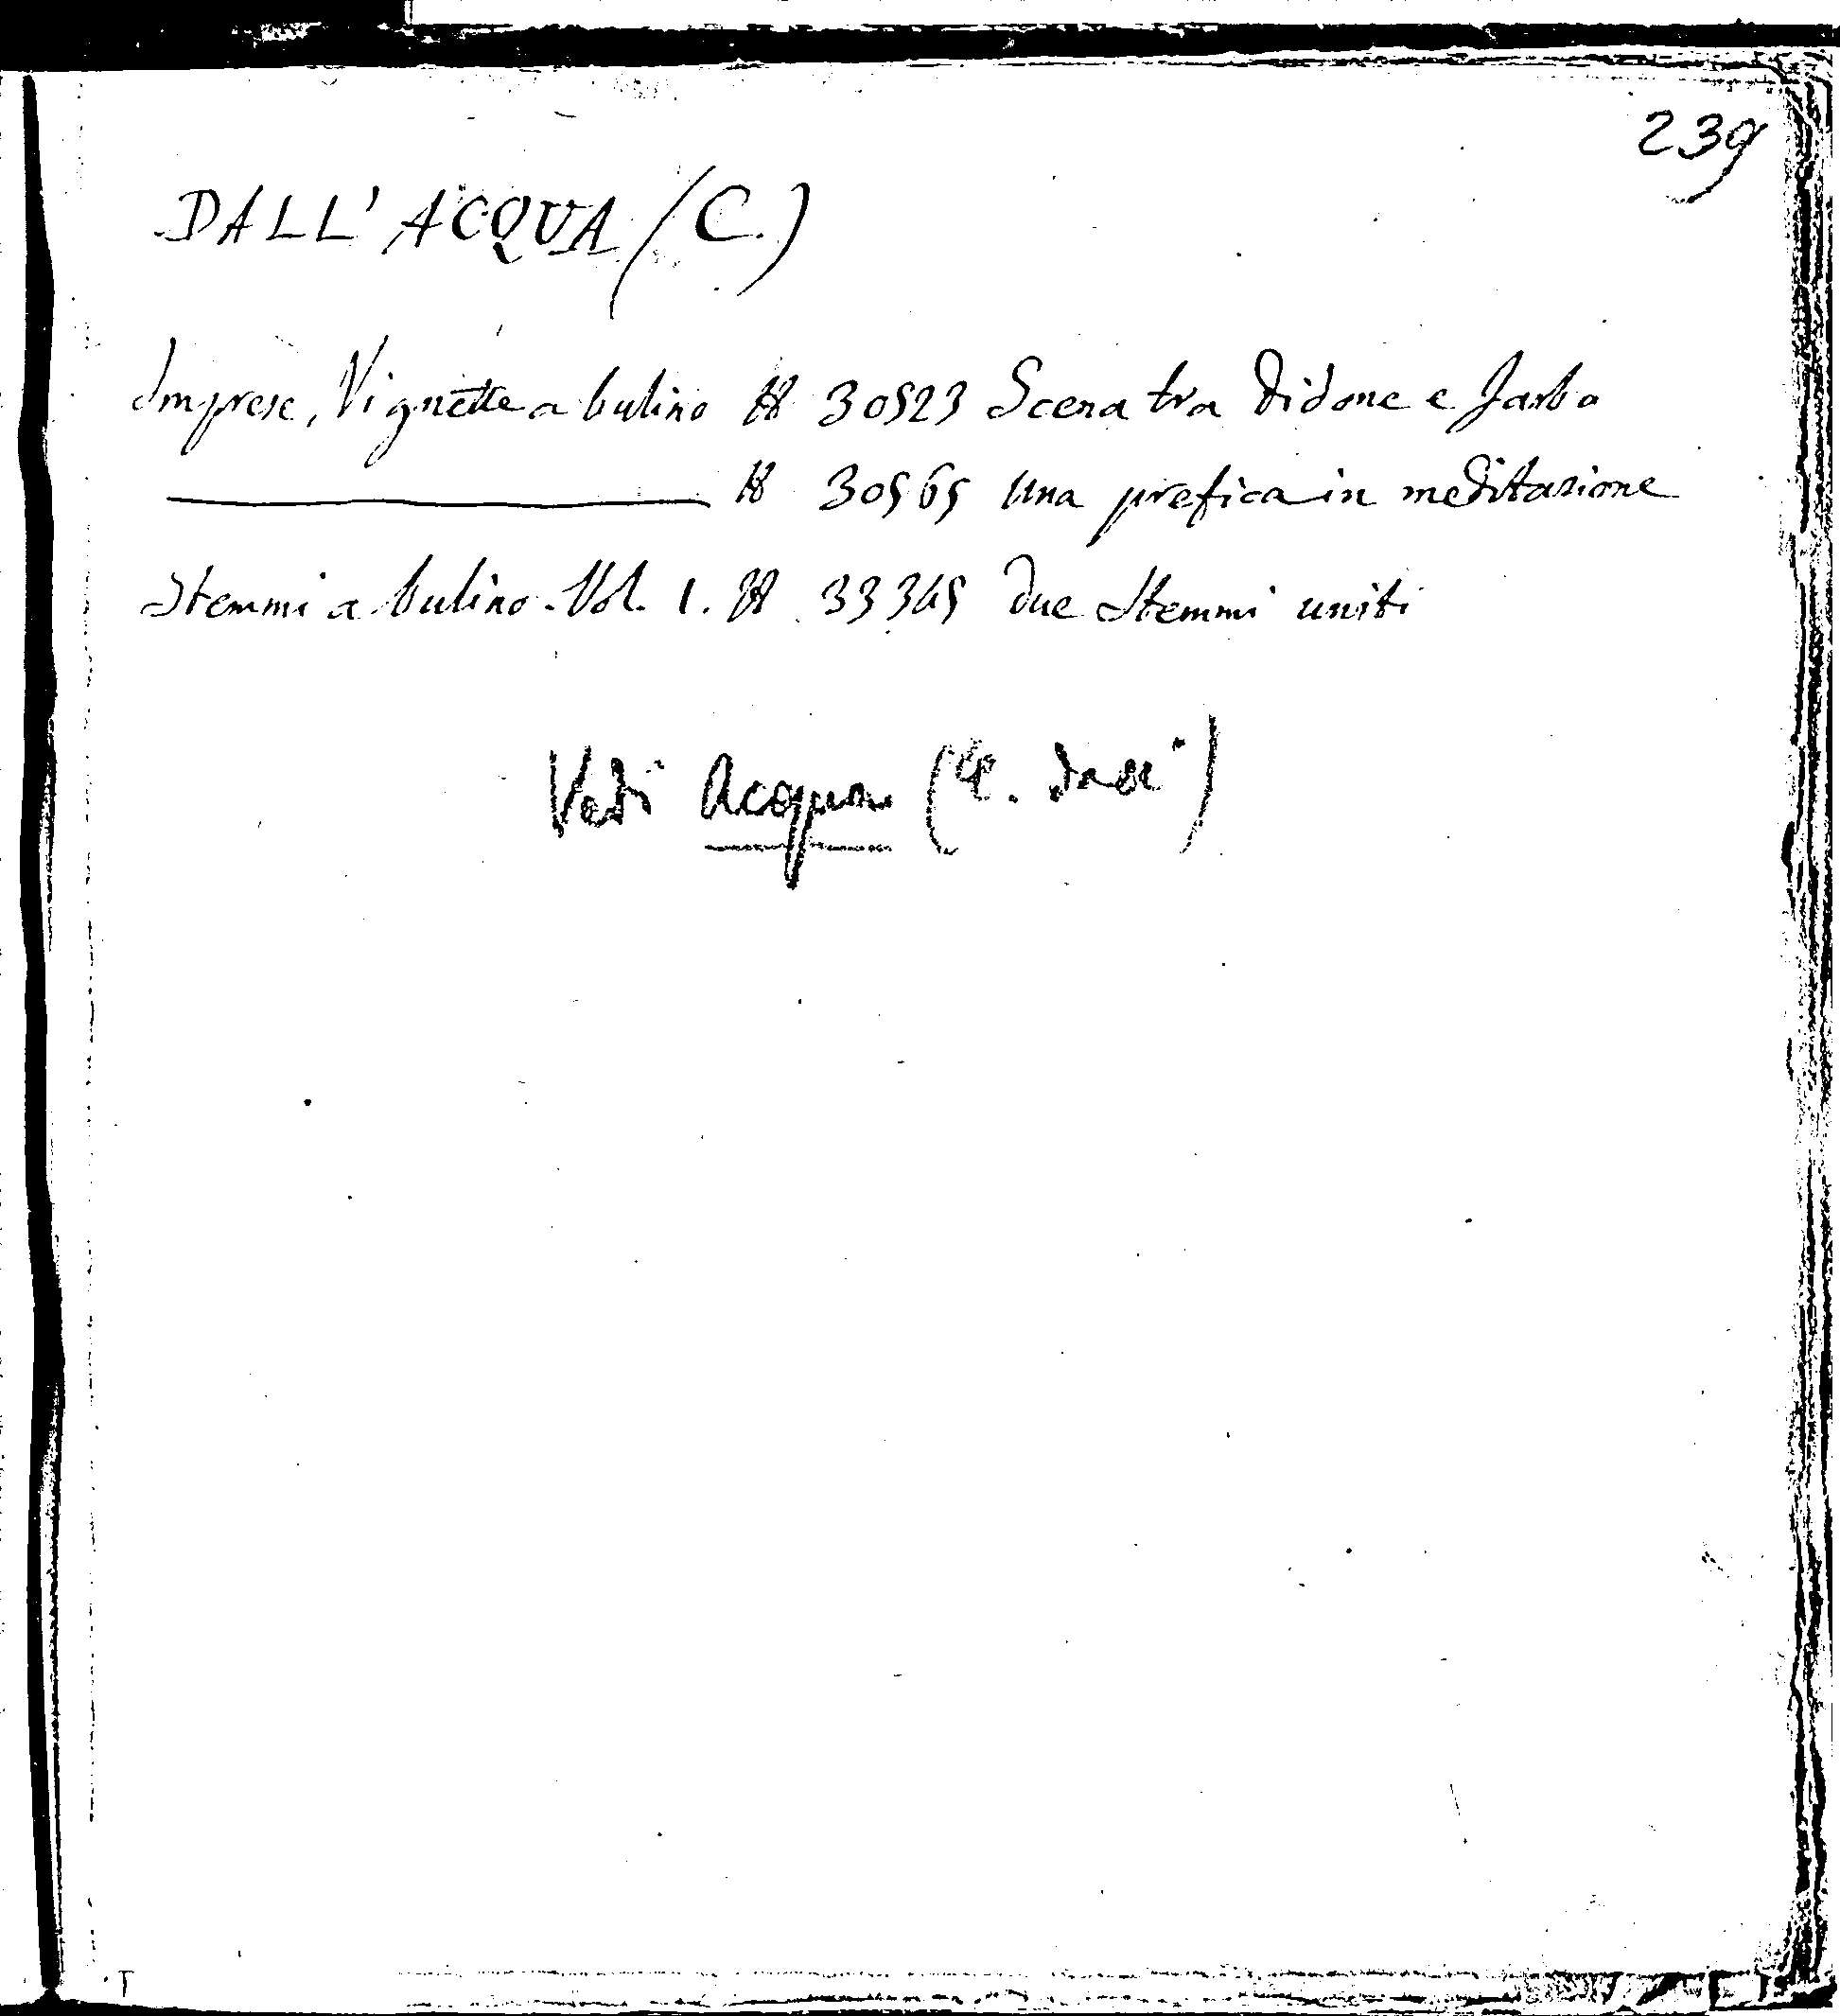 239
DALL' ACQUA (C.)
Imprese, Vignette a bulino N 30523 Scena tra Didone e Jarba
N 30565 Una prefica in meditazione
Stemmi a bulino. Vol. 1. N 33345 Due Stemmi uniti
Vedi Acqua (C. dall')